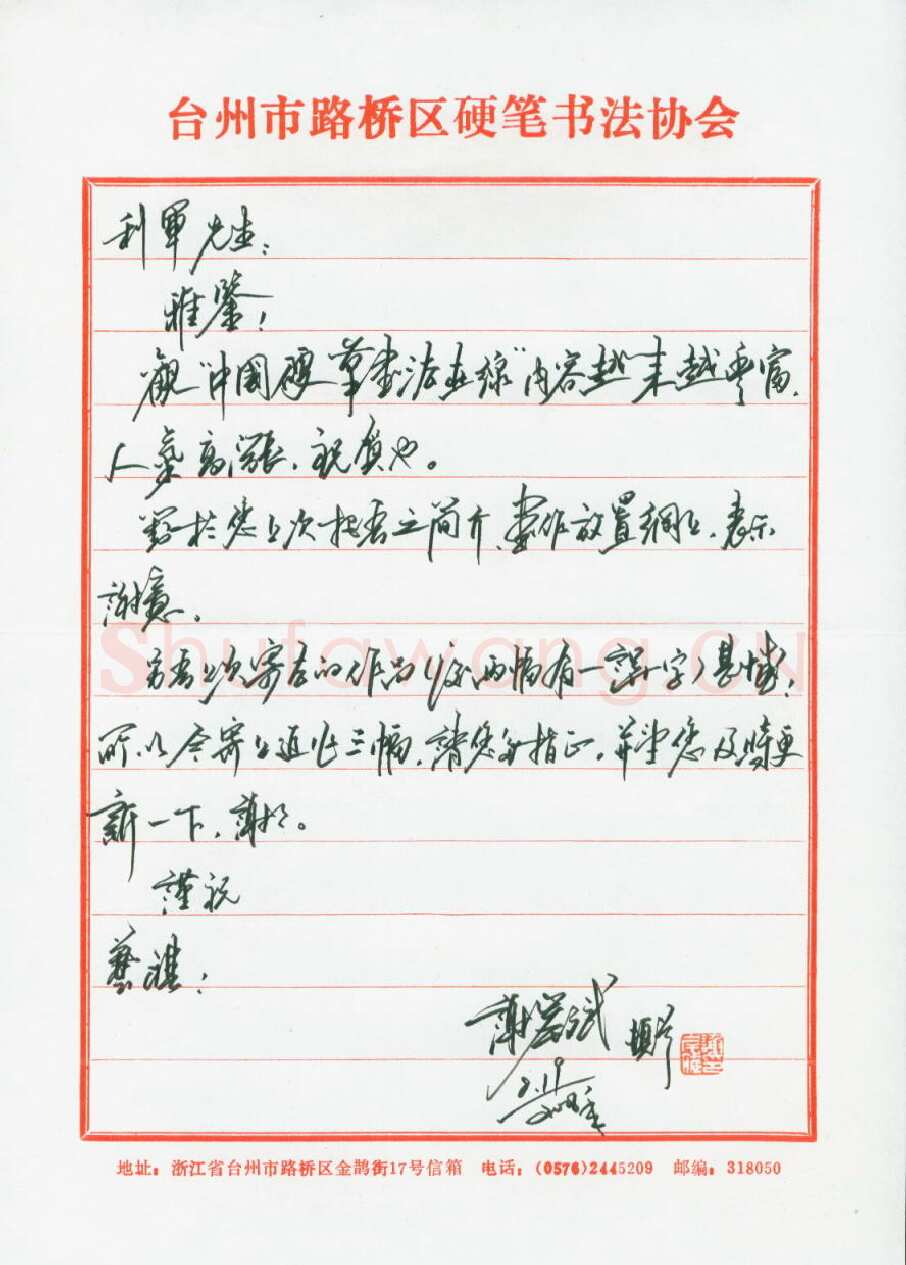 台州市路桥区硬笔书法协会
利軍先生:
雅鑒!
觀"中國硬筆書法在線"内容越来越豐富,
人氣高漲,祝賀也。
對於您上次把吾之简介、書作放置網上,表示
謝意。
另吾上次寄去的作品(後两幅有一誤字)甚憾!
所以今寄上近作三幅,請您多指正,并望您及時更
新一下,謝謝。
謹祝
藝祺!
謝 斌 頓首
2.19
地址: 浙江省台州市路桥区金鹊街17号信箱 电话: (0576)2445209 邮编: 318050
Shufawang.CN